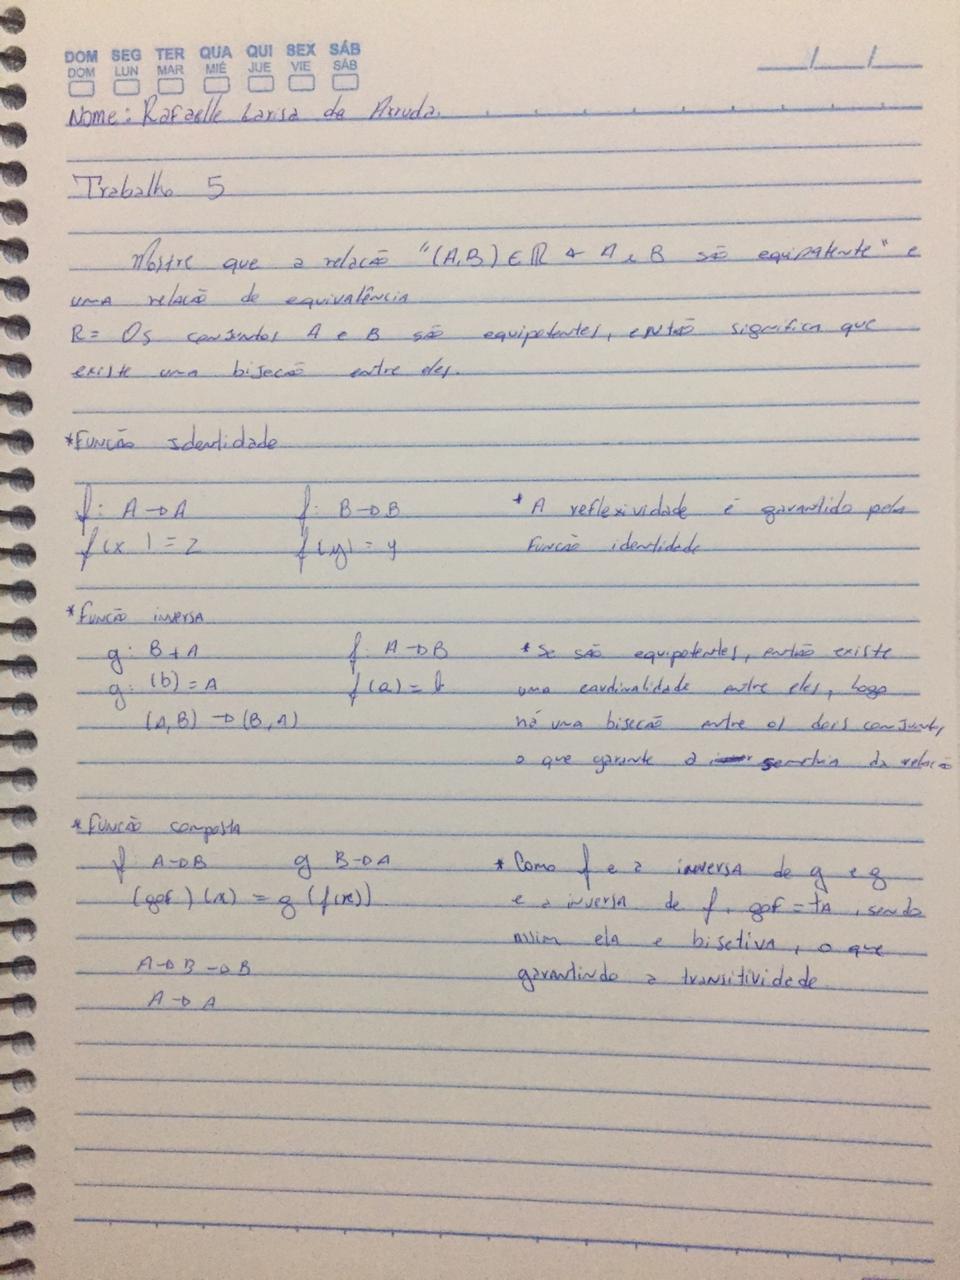 DOM SEG TER QUA QUI SEX SÁB
DOM LUN MAR MIÉ JUE VIE SÁB
/ /
Nome: Rafaelle Larisa da Arruda.
Trabalho 5
Mostre que a relação "(A,B) ∈ R A e B são equipotente" e
uma relação de equivalência
R= Os conjuntos A e B são equipotentes, então significa que
existe uma bijeção entre eles.
*Função Identidade
f: A→A f: B→B * A reflexividade é garantido pela
f(x) = 2 f(y) = y função identidade
*Função inversa
g: B+A f: A→B * Se são equipotentes, então existe
g: (b) = A f(a) = b uma cardinalidade entre eles, logo
(A,B) → (B,A) há uma bijeção entre os dois conjunt,
o que garante a semetria da relação
*Função composta
f A→B g B→A * Como f e a inversa de g e g
(gof)(x) = g(f(x)) e a inversa de f, gof = IA, sendo
assim ela e bijetiva, o que
A→B→B garantindo a transitividade
A→A